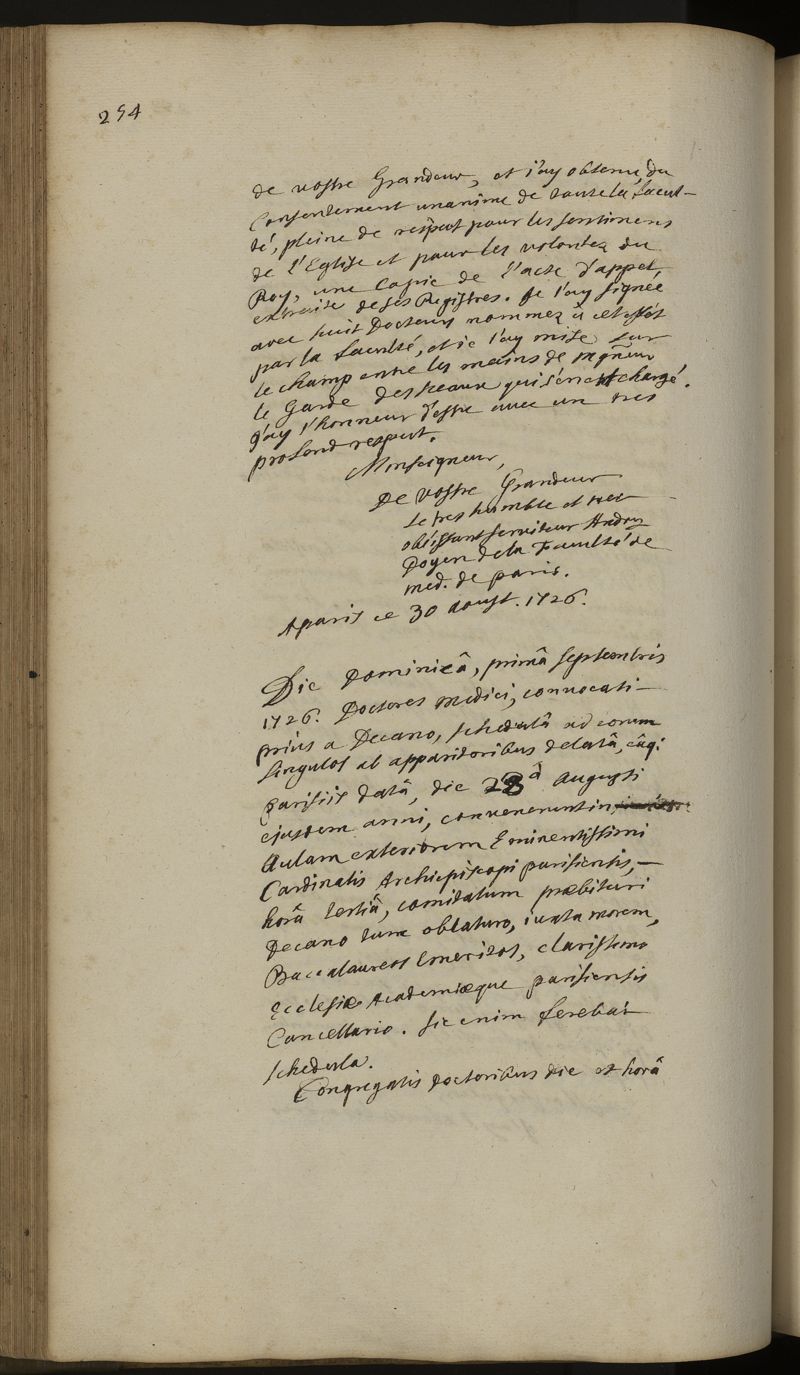 254
de vostre Grandeur, et j'ay obtenu, du
Consentement unanime de toute la facul-
té, pleine de respect pour les sentimens
de l'Eglise et pour les volontez du
Roy, une Copie de l'acte d'appel,
extraite de ses Registres. Je l'ay signée
avec huit Docteurs nommez à cet effet
par la faculté, et je l'ay mise sur
le champ entre les mains de mgneur
le Garde des sceaux qui s'en est chargé.
J'ay l'honneur d'estre avec un tres
profond respect.
Monseigneur,
De vostre Grandeur
Le tres humble et tres
obéissant serviteur Andry
Doyen de la Faculté de
med. de paris.
A paris ce 30 aoust. 1726.
Die Dominicâ, primâ septembris
1726. Doctores medici, convocati
priùs a Decano, schedulâ ad eorum
singulos ab apparitoribus delatâ, eâq;
parisiis datâ, die 28â Augusti
ejusdem anni, convenerunt in
Aulam exteriorem Eminentissimi
Cardinalis Archiepiscopi parisiensis,
horâ tertiâ, comitatum præbituri
Decano tunc oblaturo, iuxta morem,
Baccalaureos Emeritos, clarissimo
Ecclesiæ Academiæque parisiensis
Cancellario. sic enim ferebat
schedula.
Congregatis Doctoribus die et horâ